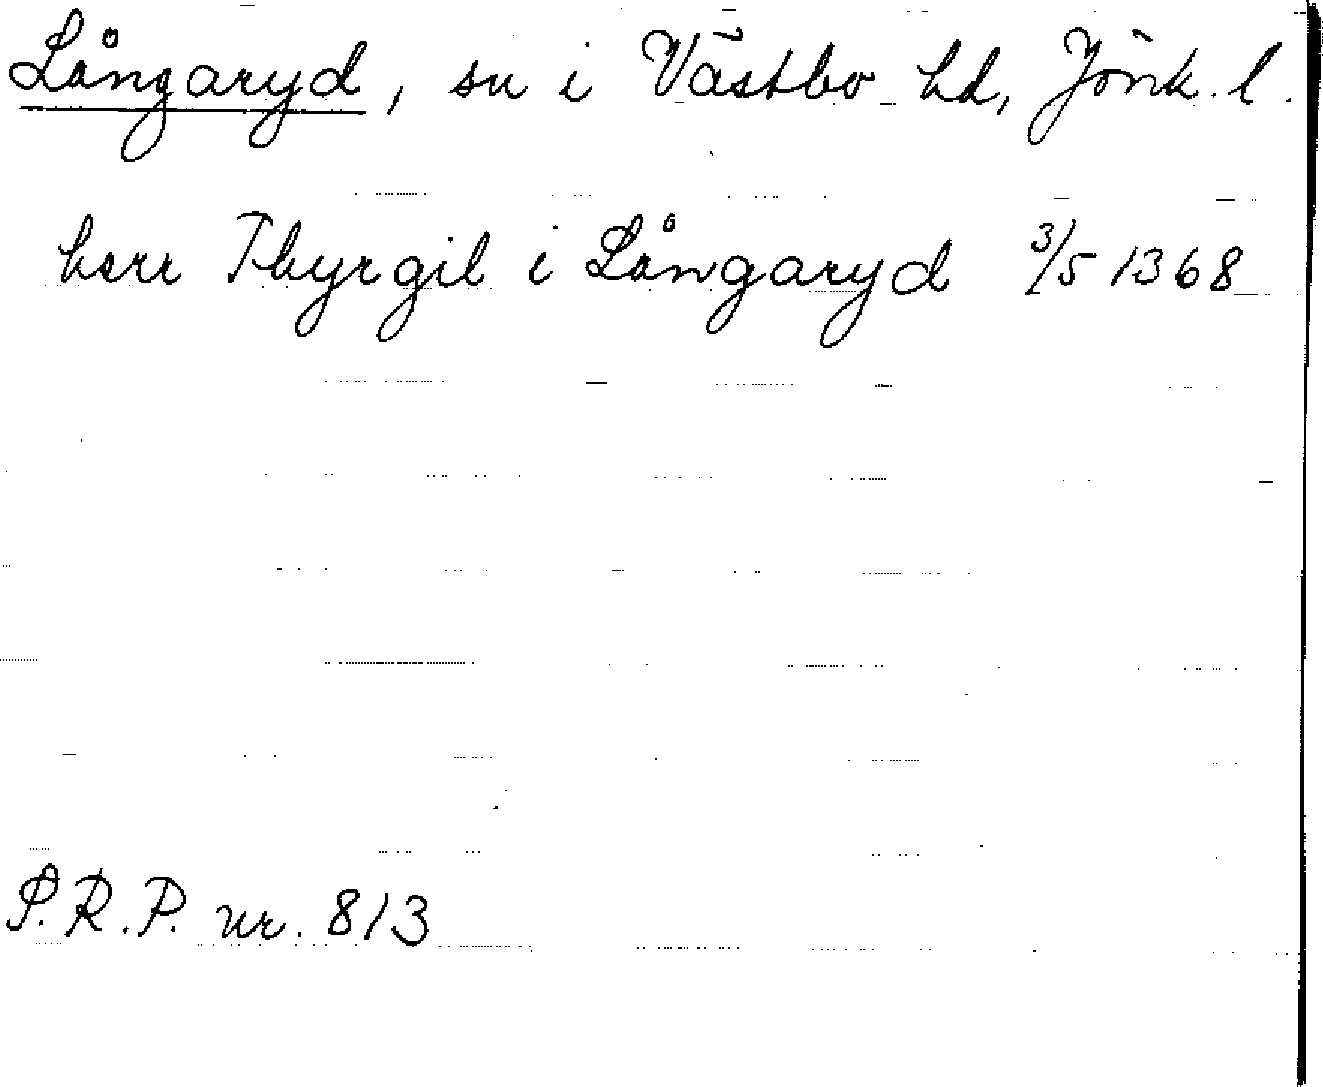 Långaryd, sn i Västbo hd, Jönk. l.
herr Thyrgil i Långaryd 3/5 1368
P.R.P. nr. 813